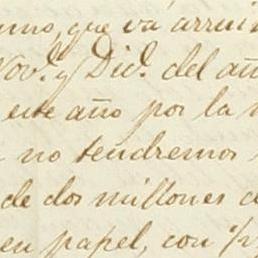 uno, que vá arrui
Nov.e y Dic.e del añ
este año por la
no tendremos
de dos millones d
en papel, con